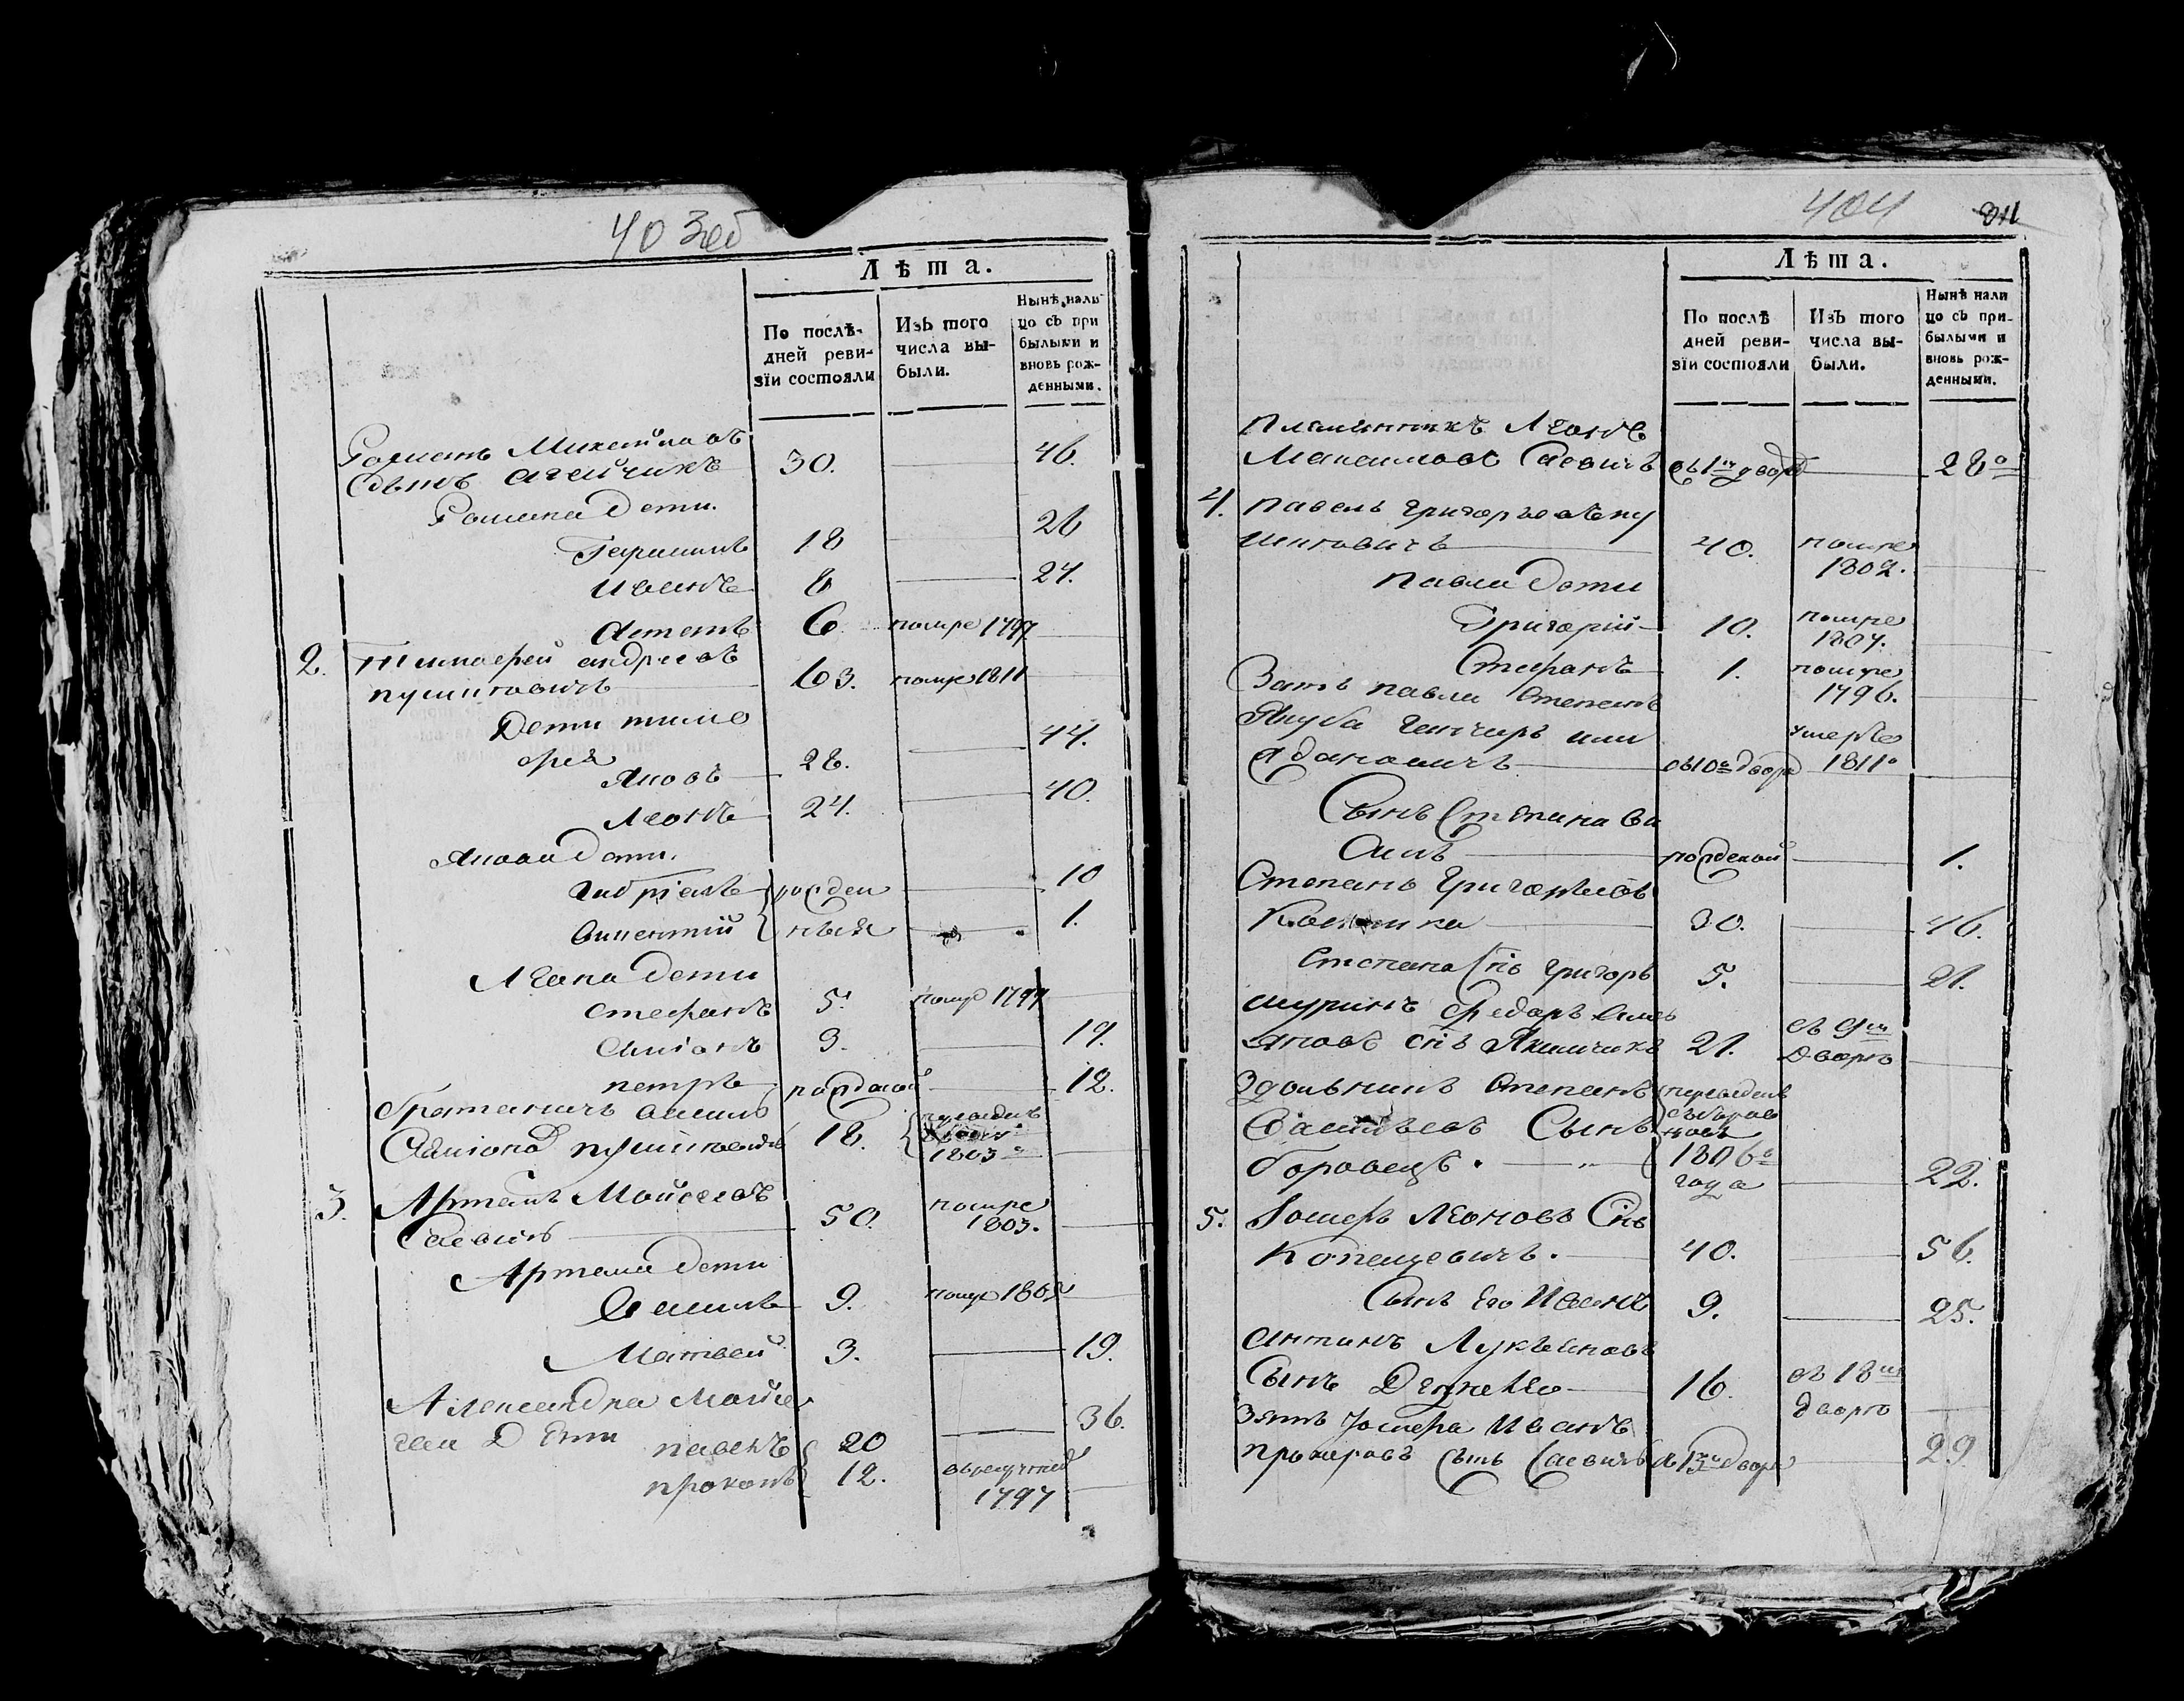 403об
Лѣта.
По послѣ-
дней реви-
зіи состояли
Изъ того
числа вы-
были.
Нынѣ нали
цо съ при
былыми и
вновь рож-
денными.
Романъ Микитинъ
Сынъ агейчикъ 30. 46.
Романа Дети.
Герасимъ 18 26
Иванъ 8 24.
Астапъ 6 помре 1797
2. Тимофей андреевъ
пушковичъ 63. помре 1811
Дети тимо
фея
Яковъ 28. 44.
Леонъ 24. 40.
Якова Дети.
Габріель рожден 10
викентій ныя 1.
Леона Дети
стефанъ 5. помре 1797
симонъ 3. 19.
петръ рожденой 12.
братаничъ
18. 1803
3. Артемъ Мойсеевъ
Саевичъ 50. помре
1803.
Артема Дети
Василь 9. помре
Матвей 3. 19.
Александра Мойсе
ева Дети павелъ 20 36.
прокопъ 12. в рекруты
1797
404
Лѣта.
По послѣ
дней реви-
зіи состояли
Изъ того
числа вы-
были.
Нынѣ нали
цо съ при-
былыми и
вновь рож-
денными.
Племянникъ Леонъ
Максимовъ Саевичъ съ 1го двора 28
4. павелъ григорьевъ пу
шковичъ 40. помре
1802.
павла Дети
Григорій 10. помре
1807.
Стефанъ 1. помре
1796.
Зять павла Степанъ
Якуба ганчаръ или
Адамовичъ двора умерше
1811
Сынъ Степана Ва
силь рожденой 1.
Степанъ григорьевъ
30. 46.
Степана Снъ григоръ 5. 21.
шуринъ Федоръ
Яковъ снъ Якимчикъ 21. въ 9й
дворъ
Степанъ переведенъ
Сынъ
Боровецъ. 1806
года 22.
5. Леоновъ Снъ
Копецевичъ. 40. 56.
Сынъ Его Иванъ 9. 25.
антонъ Лукьяновъ
Сынъ 16. въ 18й
дворъ
Зять Иванъ
прокоповъ Сынъ Саевичъ двора 29